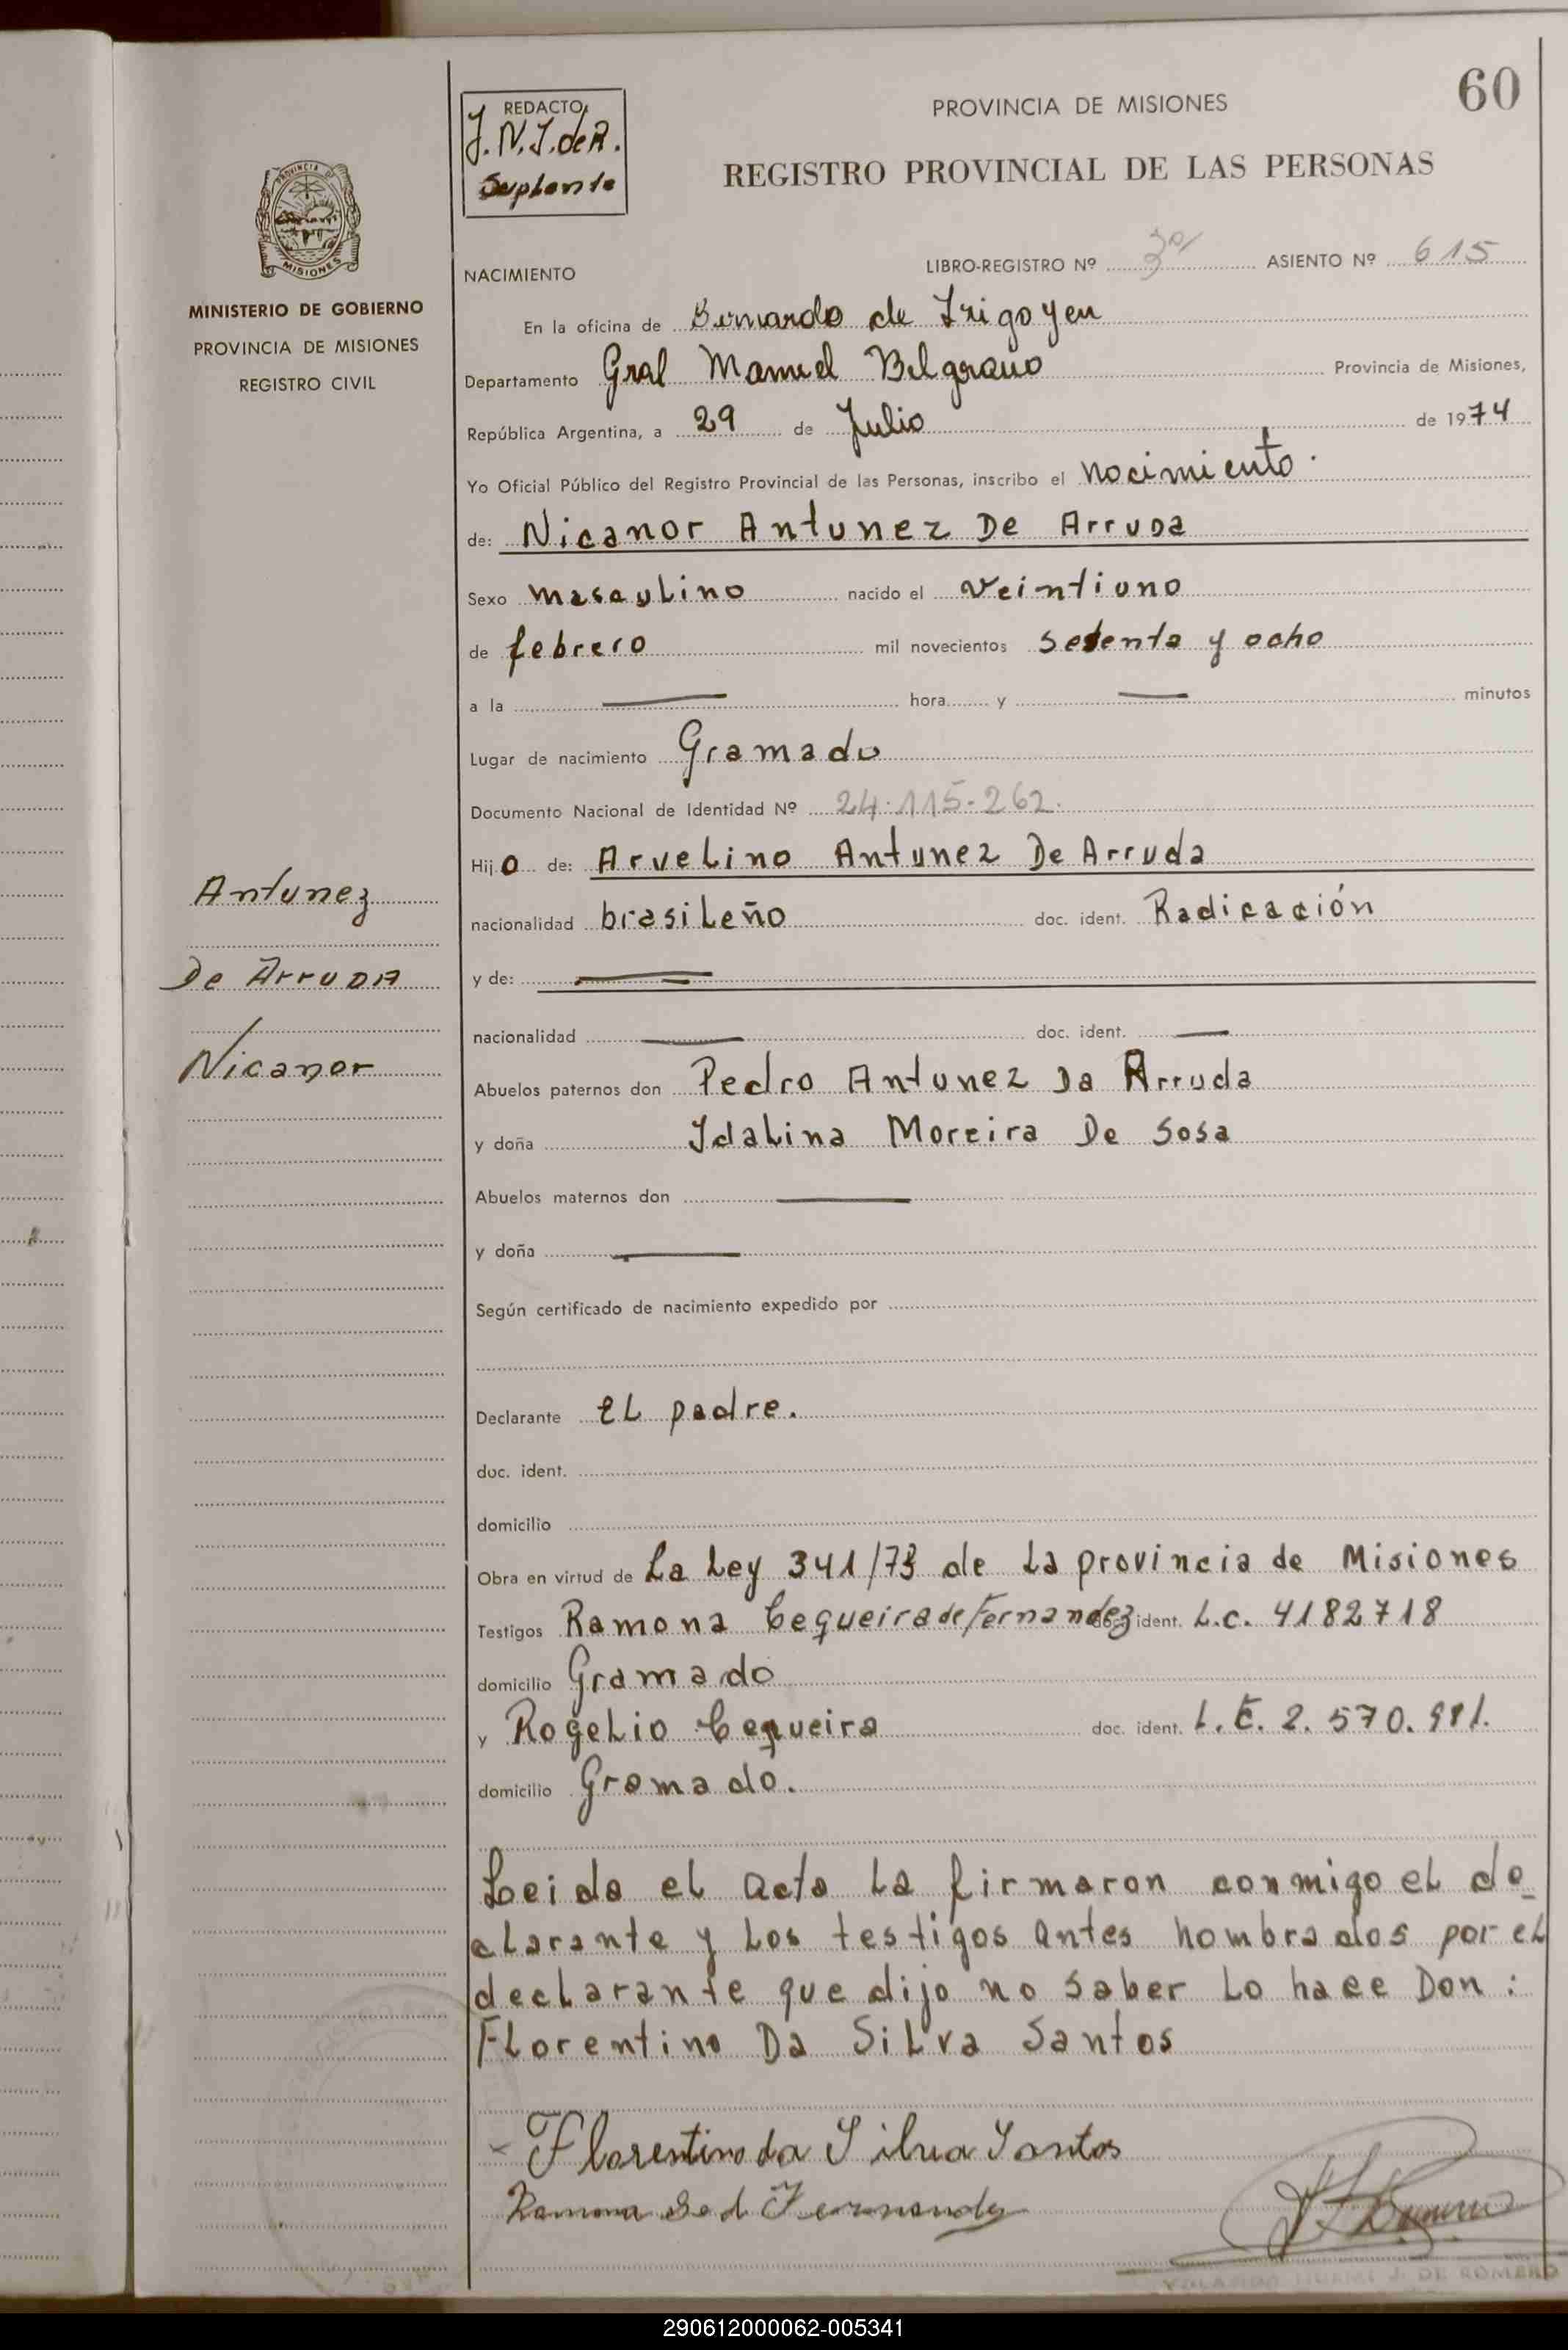 60
REDACTO
J. N. J. de R.
Suplente
PROVINCIA DE MISIONES
REGISTRO PROVINCIAL DE LAS PERSONAS
PROVINCIA DE
MISIONES
MINISTERIO DE GOBIERNO
PROVINCIA DE MISIONES
REGISTRO CIVIL
NACIMIENTO LIBRO-REGISTRO Nº 3º ASIENTO Nº 615
En la oficina de Bernardo de Irigoyen
Departamento Gral Manuel Belgrano Provincia de Misiones,
República Argentina, a 29 de Julio de 1974
Yo Oficial Público del Registro Provincial de las Personas, inscribo el nacimiento.
de: Nicanor Antunez De Arruda
Sexo masculino nacido el veintiuno
de febrero mil novecientos setenta y ocho
a la hora y minutos
Lugar de nacimiento Gramado
Documento Nacional de Identidad Nº 24.115.262.
Hijo de: Arvelino Antunez De Arruda
nacionalidad brasileño doc. ident. Radicación
y de:
nacionalidad doc. ident.
Abuelos paternos don Pedro Antunez Da Arruda
y doña Idalina Moreira De Sosa
Abuelos maternos don
y doña
Según certificado de nacimiento expedido por
Declarante el padre.
doc. ident.
domicilio
Obra en virtud de La Ley 341/73 de la provincia de Misiones
Testigos Ramona Cequeira de Fernandez doc. ident. L.C. 4182718
domicilio Gramado
y Rogelio Cequeira doc. ident. L.E. 2.570.981.
domicilio Gramado.
Leida el acta la firmaron conmigo el de
clarante y los testigos antes nombrados por el
declarante que dijo no saber lo hace Don:
Florentino Da Silva Santos
Antunez
De Arruda
Nicanor
Florentino da Silva Santos
Ramona Fernandez
J. DE ROMERO
290612000062-005341